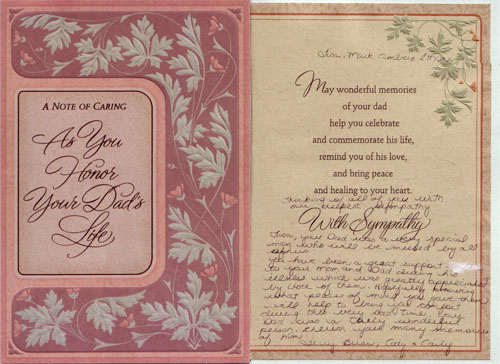 A NOTE OF CARING
As You
Honor
Your Dad's
Life
Tina, Mark, Amber &
May wonderful memories
of your dad
help you celebrate
and commemorate his life,
remind you of his love,
and bring peace
and healing to your heart.
Thinking of all of you with
our deepest sympathy
With Sympathy
Tina, your Dad was a very special
man who will be missed by all
of us.
You have been a great support
to your Mom and Dad during this
illness which was greatly appreciated
by both of them. Hopefully knowing
what peace of mind you gave them
will help to bring you comfort
during this very sad time. Your
Dad was a truly wonderful
person, cherish your many memories
of him.
Brian, Cory & Carly